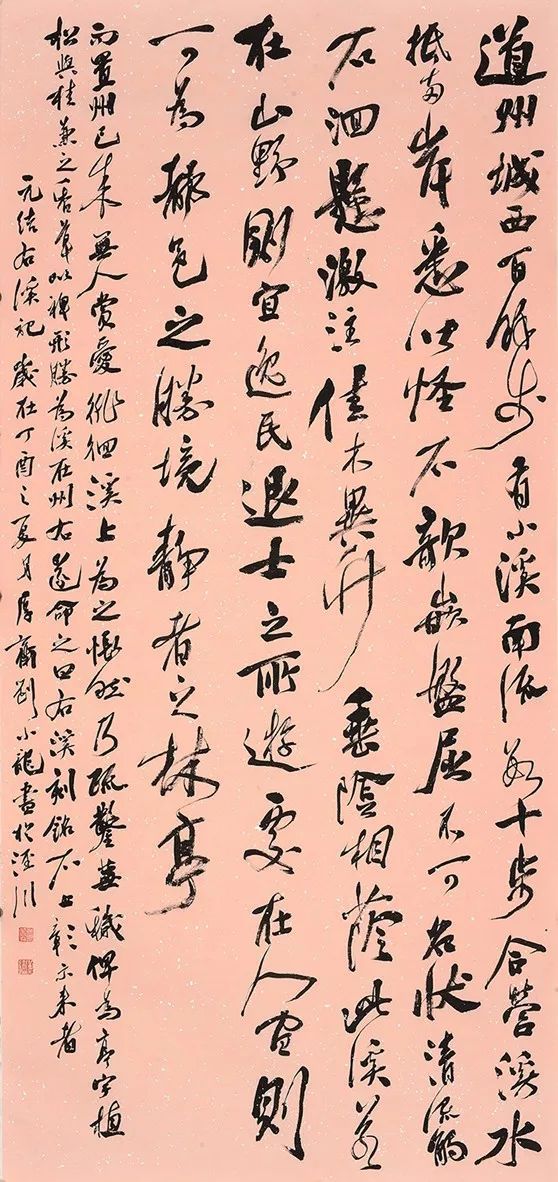 道州城西百餘步有小溪南流數十步合營溪水
抵兩岸悉皆怪石欹嵌盤屈不可名狀清流觸
石洄懸激注佳木異竹垂陰相蔭此溪若
在山野則宜逸民退士之所遊處在人間則
可為都邑之勝境靜者之林亭
而置州已來無人賞愛徘徊溪上為之悵然乃疏鑿蕪穢俾為亭宇植
松與桂兼之香草以裨形勝為溪在州右遂命之曰右溪刻銘石上彰示來者
元結右溪記 歲在丁酉之夏月厚齋劉小龍書於涇川